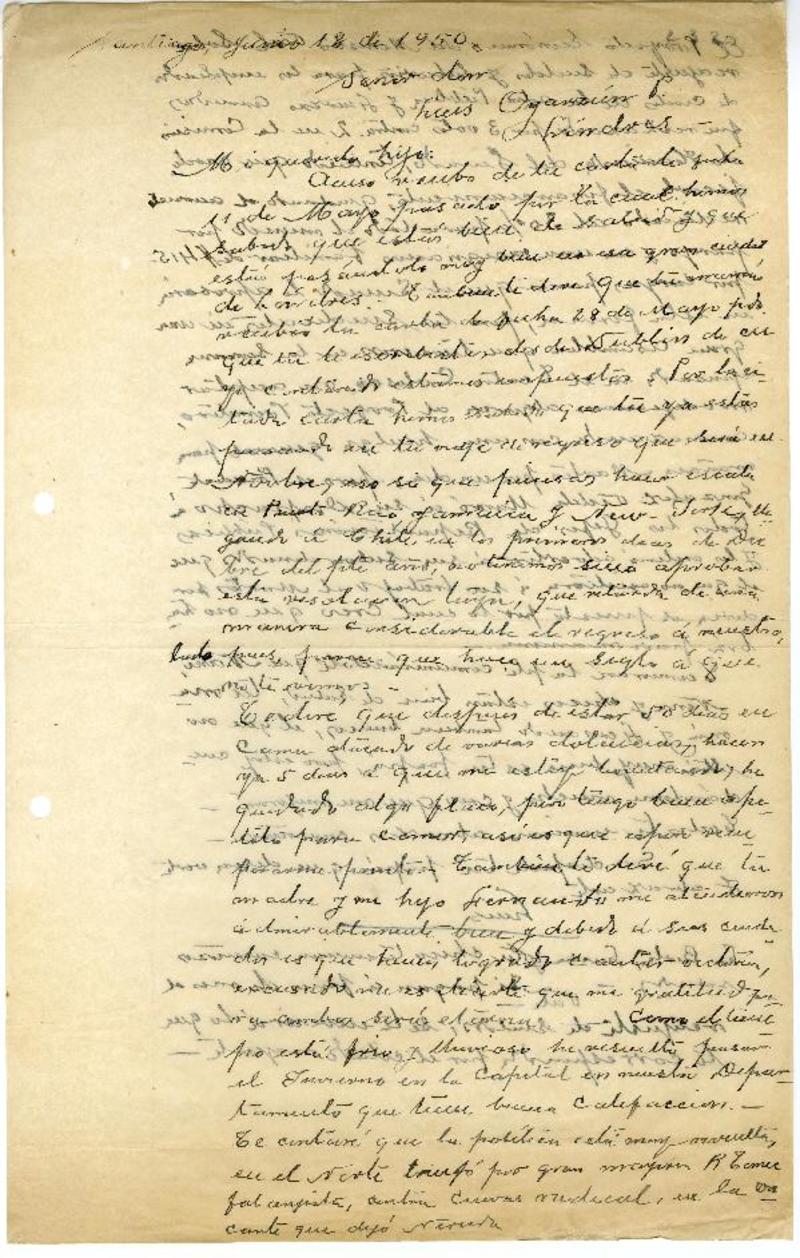 Santiago, Junio 18 de 1950
Señor don
Luis Oyarzún
Londres
Mi querido hijo:
Acuso recibo de tu carta de fecha
11 de Mayo pasado por la cual hemos
sabido que estás bien de salud y que
estás pasándolo muy bien en esa gran ciudad
de Londres. También te diré que tu mamá
recibió tu carta de fecha 28 de Mayo pdo.
que tú le escribistes desde Dublin de cu-
yo contenido estamos impuestos. Por la ci-
tada carta hemos sabido que tú ya estás
pensando en tu viaje de regreso que será en
Noviembre, eso si que piensas hacer escala
en Puerto Rico, Jamaica y New-York, y lle-
gando a Chile en los primeros dias de Dicbre
del pte año, no tenemos sino aprobar
esta resolucion tuya, que retarda de una
manera considerable el regreso á nuestro
lado pues, parece que hace un siglo á que
no te vemos. -
Te diré que despues de estar 58 dias en
cama atacado de varias dolencias, hacen
ya 5 dias á que me estoy levantando, he
quedado algo flaco, pero tengo buen ape-
tito para comer, así es que espero recu-
perarme pronto. - También te diré que tu
madre y mi hijo Fernando me atendieron
admirablemente bien y debido á sus cuida-
dos es que hemos logrado cantar victoria,
excusando decirte que mi gratitud pa-
ra ambos será eterna. Como el tiem-
po está frio y lluvioso he resuelto pasar
el Invierno en la Capital en nuestro Depar-
tamento que tiene buena calefaccion. -
Te contaré que la politica está muy revuelta,
en el Norte triunfó por gran mayoria R Tomic
falangista, contra Cuevas radical, en la va-
cante que dejó Neruda